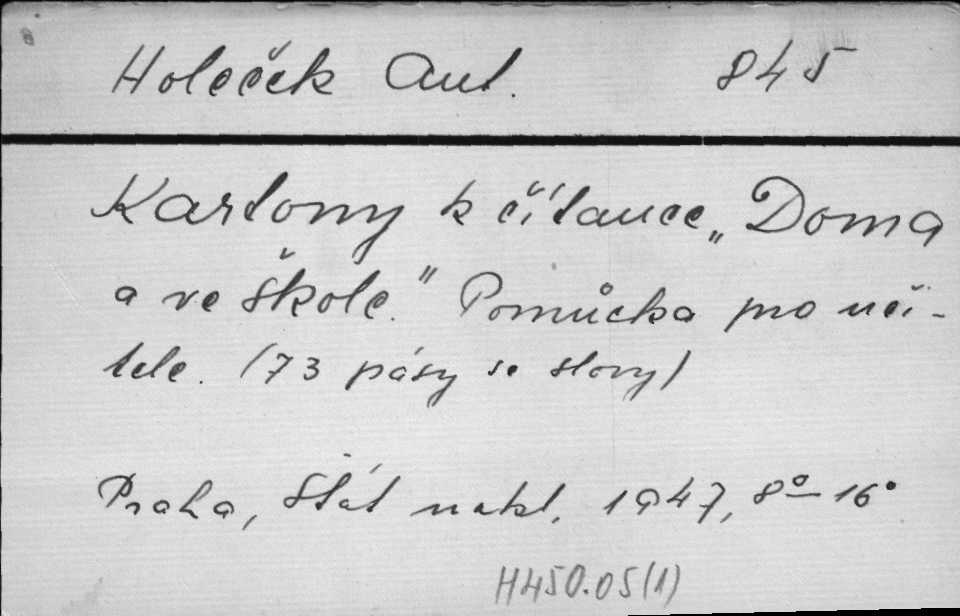 Holeček Ant. 845
Kartony k čítance „Doma
a ve škole." Pomůcka pro uči-
tele. (73 pásy se slovy)
Praha, Stát nakl. 1947, 8° – 16°
H450.05(1)